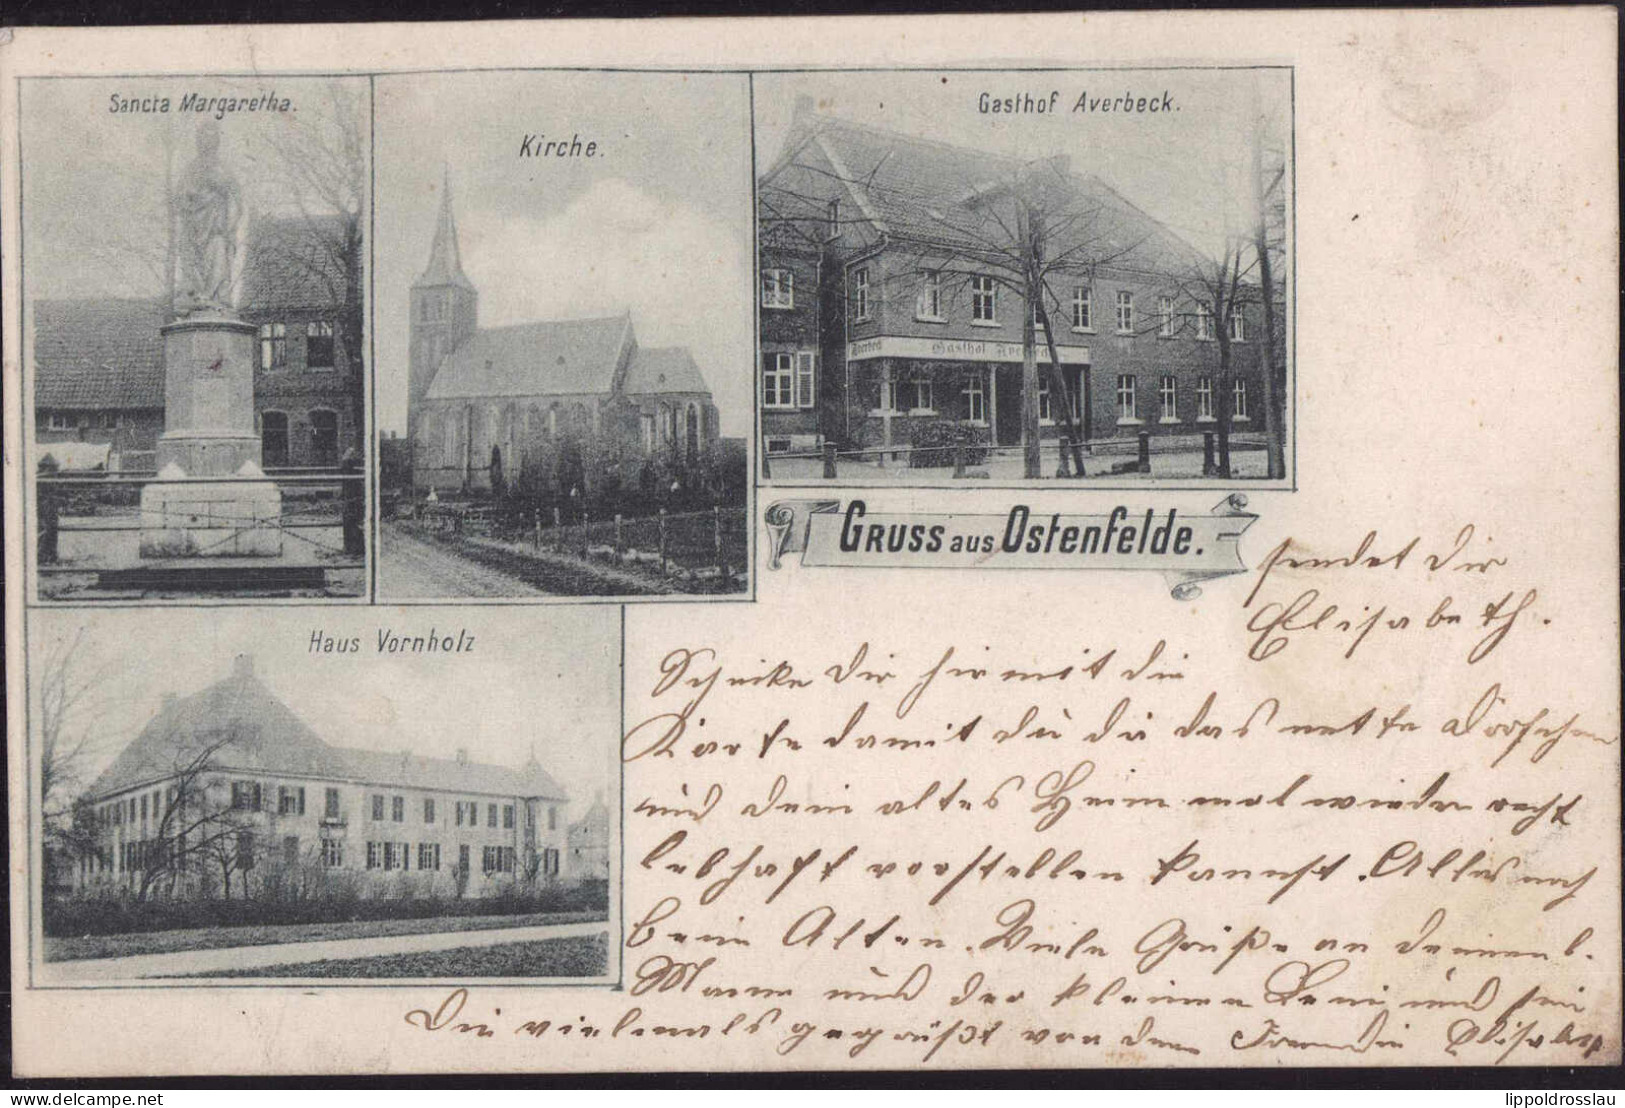 Sancta Margaretha.
Kirche.
Gasthof Averbeck.
Averbeck Gasthof Averbeck
GRUSS aus Ostenfelde.
Haus Vornholz
sendet dir
Elisabeth.
Schicke dir hiermit die
Karte damit du dir das nette Dörfchen
und dein altes Heim mal wieder recht
lebhaft vorstellen kannst. Alles noch
beim Alten. Viele Grüße an deinen l.
Mann und der kleinen Leni und sei
Du vielmals gegrüßt von deiner Freundin Elisabeth
© www.delcampe.net
lippoldrosslau